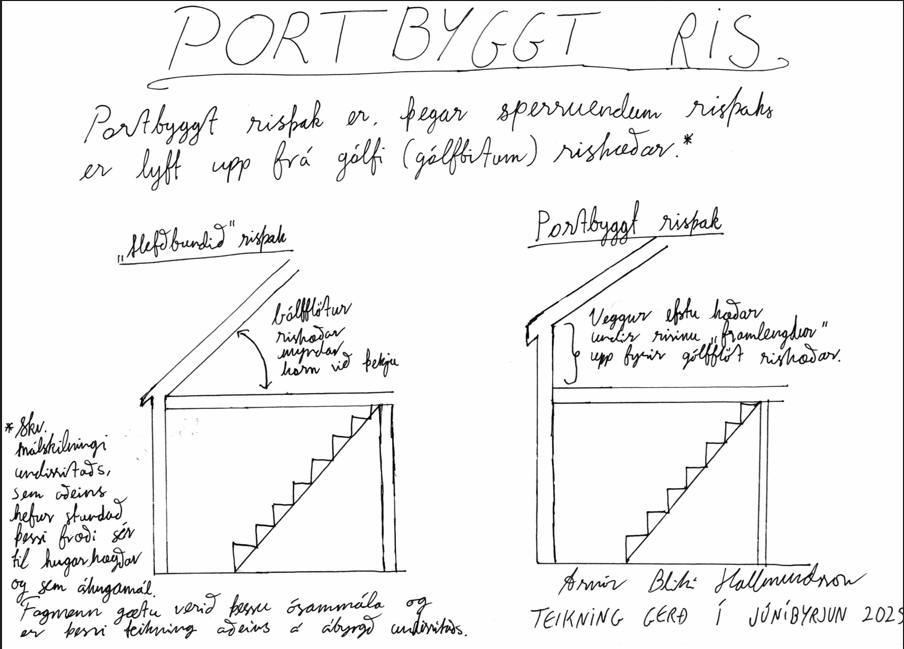 PORTBYGGT RIS
Portbyggt risþak er, þegar sperruendum risþaks
er lyft upp frá gólfi (gólfbitum) rishæðar.*
„Hefðbundið" risþak
Gólfflötur
rishæðar
myndar
horn við þekju
Portbyggt risþak
Veggur efstu hæðar
undir risinu „framlengdur"
upp fyrir gólfflöt rishæðar.
*Skv.
málskilningi
undirritaðs,
sem aðeins
hefur stundað
þessi fræði sér
til hugarhægðar
og sem áhugamál.
Fagmenn gætu verið þessu ósammála og
er þessi teikning aðeins á ábyrgð undirritaðs.
Arnór Bliki Hallmundsson
TEIKNING GERÐ Í JÚNÍBYRJUN 2025